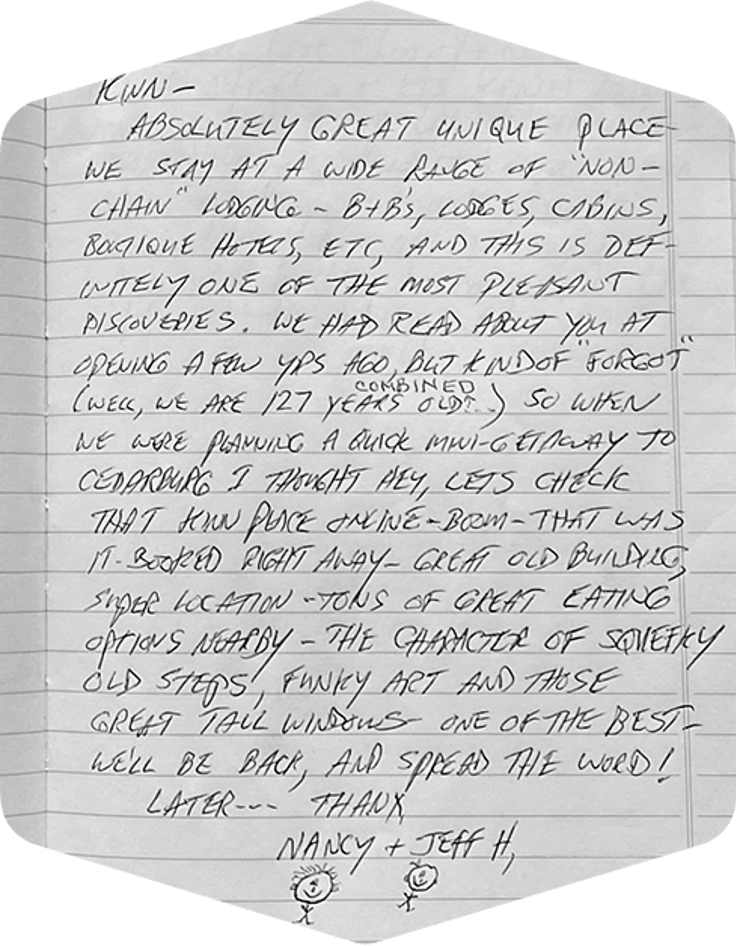 KINN-
ABSOLUTELY GREAT UNIQUE PLACE-
WE STAY AT A WIDE RANGE OF "NON-
CHAIN" LODGING - B+B's, LODGES, CABINS,
BOUTIQUE HOTELS, ETC, AND THIS IS DEF-
INITELY ONE OF THE MOST PLEASANT
DISCOVERIES. WE HAD READ ABOUT YOU AT
OPENING A FEW YRS AGO, BUT KIND OF "FORGOT"
COMBINED
(WELL, WE ARE 127 YEARS OLD!!) SO WHEN
WE WERE PLANNING A QUICK MINI-GETAWAY TO
CEDARBURG I THOUGHT HEY, LETS CHECK
THAT KINN PLACE ONLINE - BOOM - THAT WAS
IT-BOOKED RIGHT AWAY - GREAT OLD BUILDING,
SUPER LOCATION - TONS OF GREAT EATING
OPTIONS NEARBY - THE CHARACTER OF SQUEEKY
OLD STEPS, FUNKY ART AND THOSE
GREAT TALL WINDOWS - ONE OF THE BEST-
WE'LL BE BACK, AND SPREAD THE WORD!
LATER--- THANX,
NANCY + JEFF H,